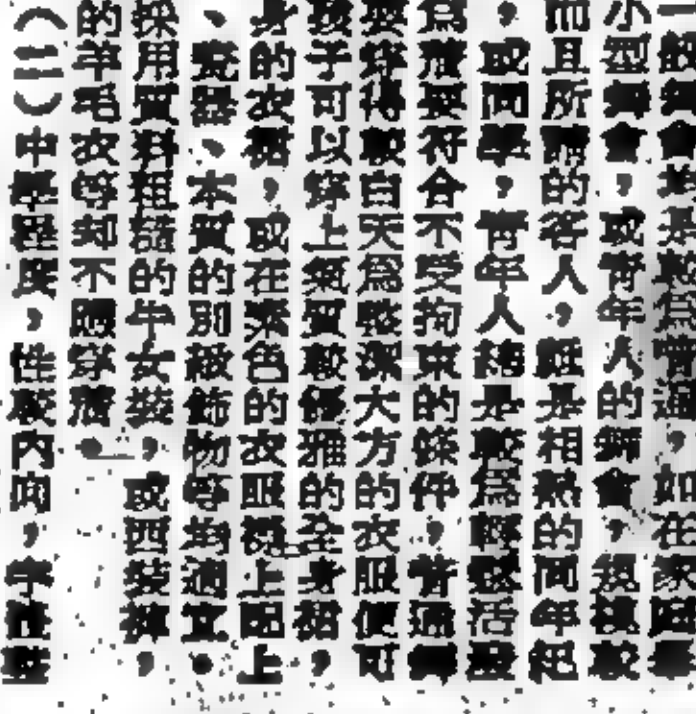 一般舞會均是較為普遍，如在家庭舉
小型舞會，或青年人的舞會，規模較
而且所請的客人，既是相熟的同年紀
，或同學，青年人總是較為輕鬆活潑
為應要符合不受拘束的條件，普通舞
要穿得較白天為整潔大方的衣服便可
孩子可以穿上氣質較優雅的全身裙，
身的衣裙，或在素色的衣服裙上配上
、瓷器、本質的別緻飾物等均適宜。
採用質料粗糙的牛女裝，或西裝褲，
的羊毛衣等却不應穿應。
（二）中學程度，性較內向，